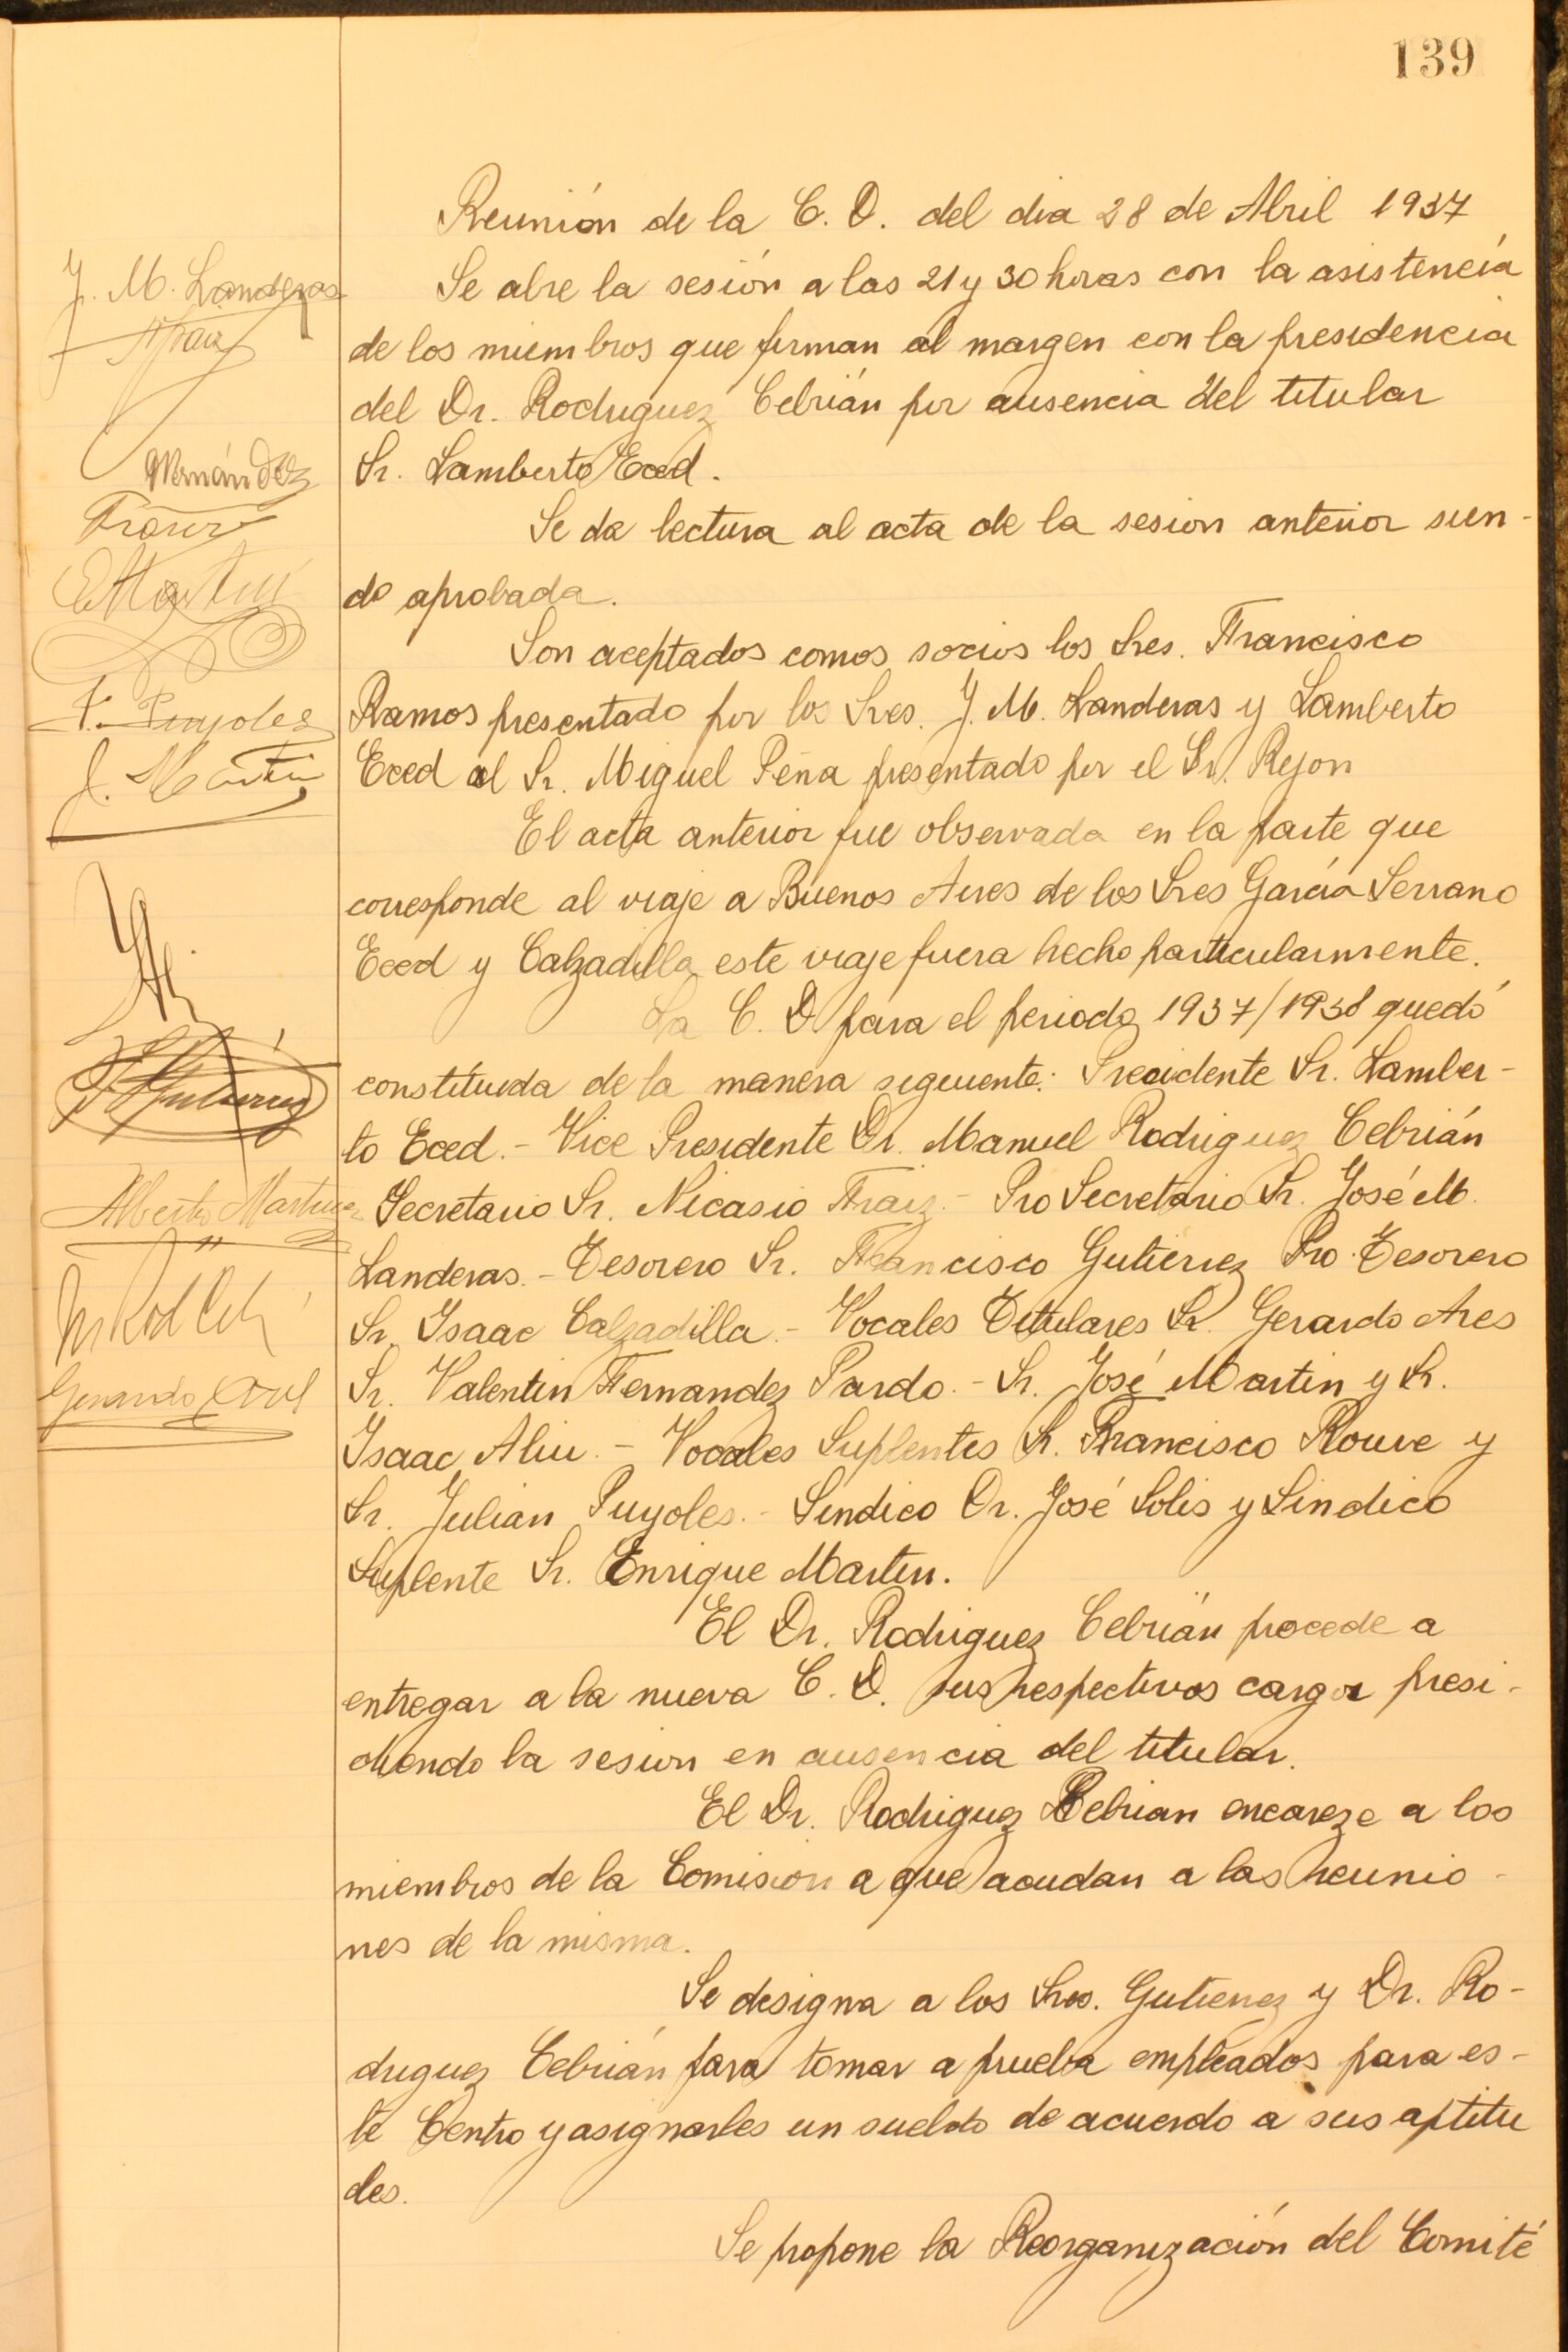 139
Reunión de la C. D. del dia 28 de Abril 1937
Se abre la sesión a las 21 y 30 horas con la asistencia
de los miembros que firman al margen con la presidencia
del Dr. Rodriguez Cebrián por ausencia del titular
Sr. Lamberto Eced.
Se da lectura al acta de la sesion anterior sien-
do aprobada.
Son aceptados comos socios los Sres. Francisco
Ramos presentado por los Sres. J. M. Landeras y Lamberto
Eced al Sr. Miguel Peña presentado por el Sr. Rejon
El acta anterior fue observada en la parte que
corresponde al viaje a Buenos Aires de los Sres García Serrano
Eced y Calzadilla este viaje fuera hecho particularmente.
La C. D para el periodo 1937/1938 quedó
constituida de la manera siguiente: Presidente Sr. Lamber-
to Eced. - Vice Presidente Dr. Manuel Rodriguez Cebrián
Secretario Sr. Nicasio Fraiz. - Pro Secretario Sr. José M.
Landeras. - Tesorero Sr. Francisco Gutierrez Pro. Tesorero
Sr. Isaac Calzadilla. - Vocales Titulares Sr. Gerardo Ares
Sr. Valentin Fernandez Pardo. - Sr. José Martin y Sr.
Isaac Aliu. - Vocales Suplentes Sr. Francisco Rouve y
Sr. Julian Puyoles. - Sindico Dr. José Solis y Sindico
Suplente Sr. Enrique Martin.
El Dr. Rodriguez Cebrián procede a
entregar a la nueva C. D. sus respectivos cargos presi-
diendo la sesion en ausencia del titular.
El Dr. Rodriguez Cebrian encareze a los
miembros de la Comision a que acudan a las reunio-
nes de la misma.
Se designa a los Sres. Gutierrez y Dr. Ro-
driguez Cebrián para tomar a prueba empleados para es-
te Centro y asignarles un sueldo de acuerdo a sus aptitu
des.
Se propone la Reorganización del Comité
J. M. Landeras
Fraiz
Hernández
E Martin
F. Puyoles
J. Martin
F Gutierrez
Alberto Martinez
M Rod Ceb
Gerardo Ares